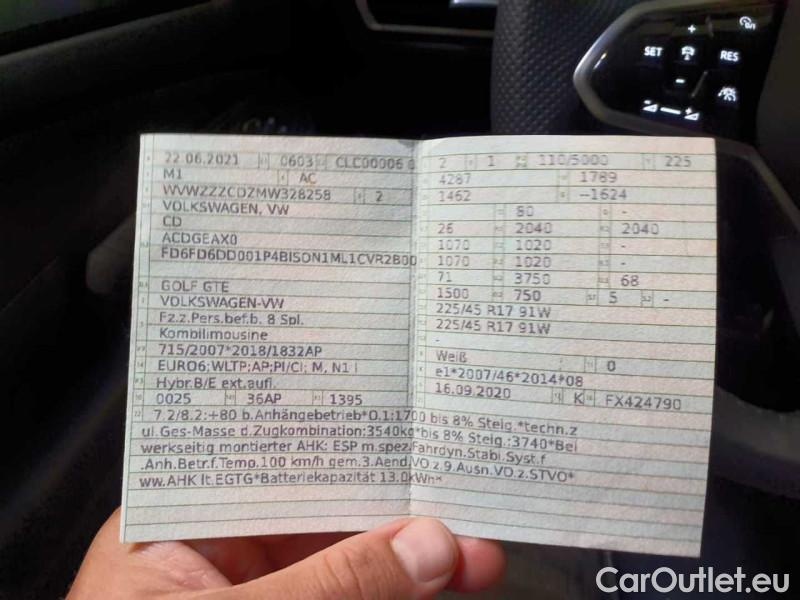 SET
RES
22.06.2021 0603 CLC00006 0
M1 AC
WVWZZZCDZMW328258 2
VOLKSWAGEN, VW
CD
ACDGEAX0
FD6FD6DD001P4BISON1ML1CVR2B00
GOLF GTE
VOLKSWAGEN-VW
Fz.z.Pers.bef.b. 8 Spl.
Kombilimousine
715/2007*2018/1832AP
EURO6;WLTP;AP;PI/CI; M, N1 I
Hybr.B/E ext.aufl.
0025 36AP 1395
2 1 110/5000 225
4287 1789
1462 --1624
80 -
26 2040 2040
1070 1020 -
1070 1020 -
71 3750 68
1500 750 5 -
225/45 R17 91W
225/45 R17 91W
-
Weiß 0
e1*2007/46*2014*08
16.09.2020 K FX424790
7.2/8.2:+80 b.Anhängebetrieb*O.1:1700 bis 8% Steig.*techn.z
ul.Ges-Masse d.Zugkombination:3540kg*bis 8% Steig.:3740*Bei
werkseitig montierter AHK: ESP m.spez.Fahrdyn.Stabi.Syst.f
.Anh.Betr.f.Temp.100 km/h gem.3.Aend.VO z.9.Ausn.VO.z.STVO*
ww.AHK lt.EGTG*Batteriekapazität 13.0kWh*
CarOutlet.eu